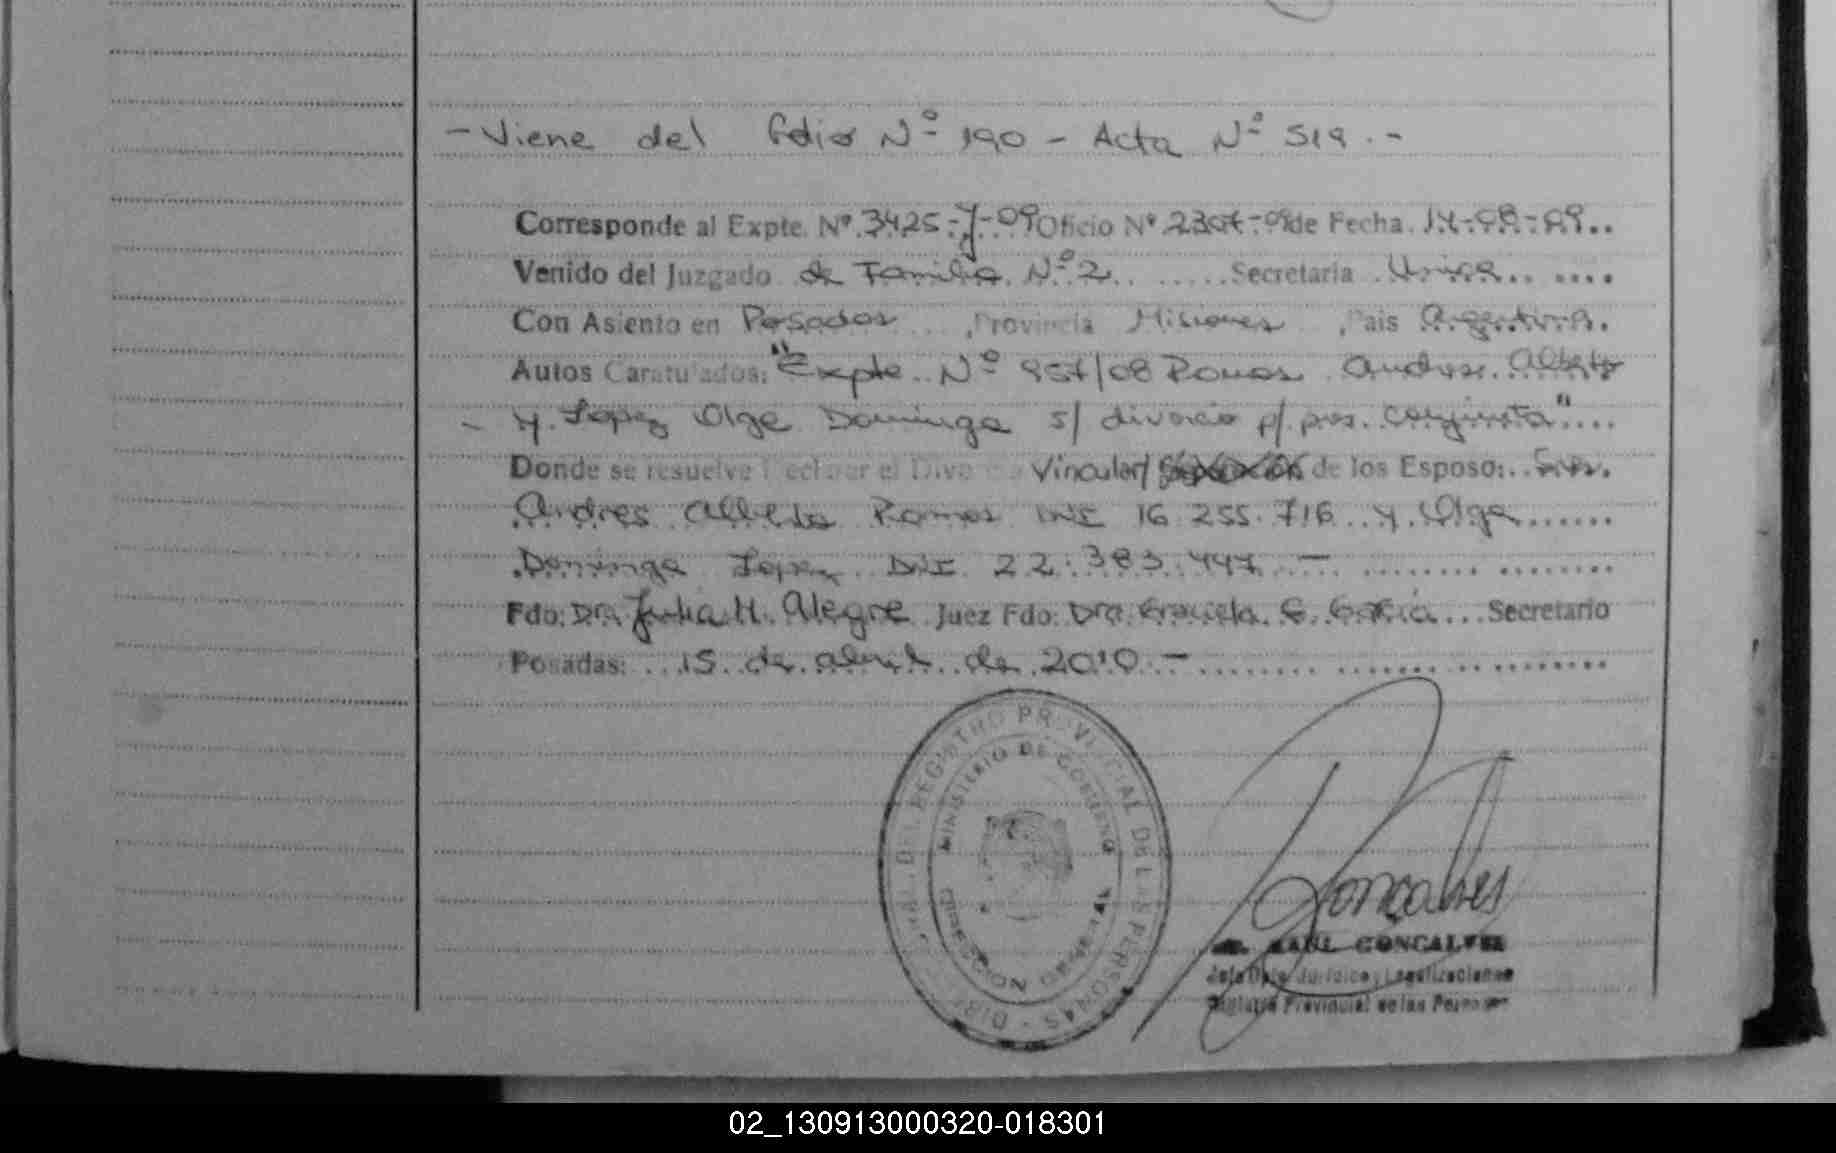 - Viene del folio Nº 190 - Acta Nº 519.-
Corresponde al Expte. Nº 3425-J-09 Oficio Nº 2307-09 de Fecha. 14-08-09..
Venido del Juzgado de Familia Nº 2 Secretaria Unica
Con Asiento en Posadas, Provincia Misiones, Pais Argentina.
Autos Caratulados: "Expte. Nº 957/08 Ramos Andres Alberto
- y Lopez Olga Dominga s/ divorcio p/ pres. conjunta"
Donde se resuelve Declarar el Divorcio Vincular/ de los Esposo: Sres.
Andres Alberto Ramos DNI 16.255.716 y Olga
Dominga Lopez DNI 22.383.447.-
Fdo: Dra. Julia H. Alegre Juez Fdo: Dra. Graciela E. Garcia Secretario
Posadas: 15 de abril de 2010.-
DIRECCION GRAL. DEL REGISTRO PROVINCIAL DE LAS PERSONAS
MINISTERIO DE GOBIERNO
Goncalves
RAUL GONCALVES
Jefe Dpto. Juridico y Legalizaciones
Registro Provincial de las Personas
02_130913000320-018301